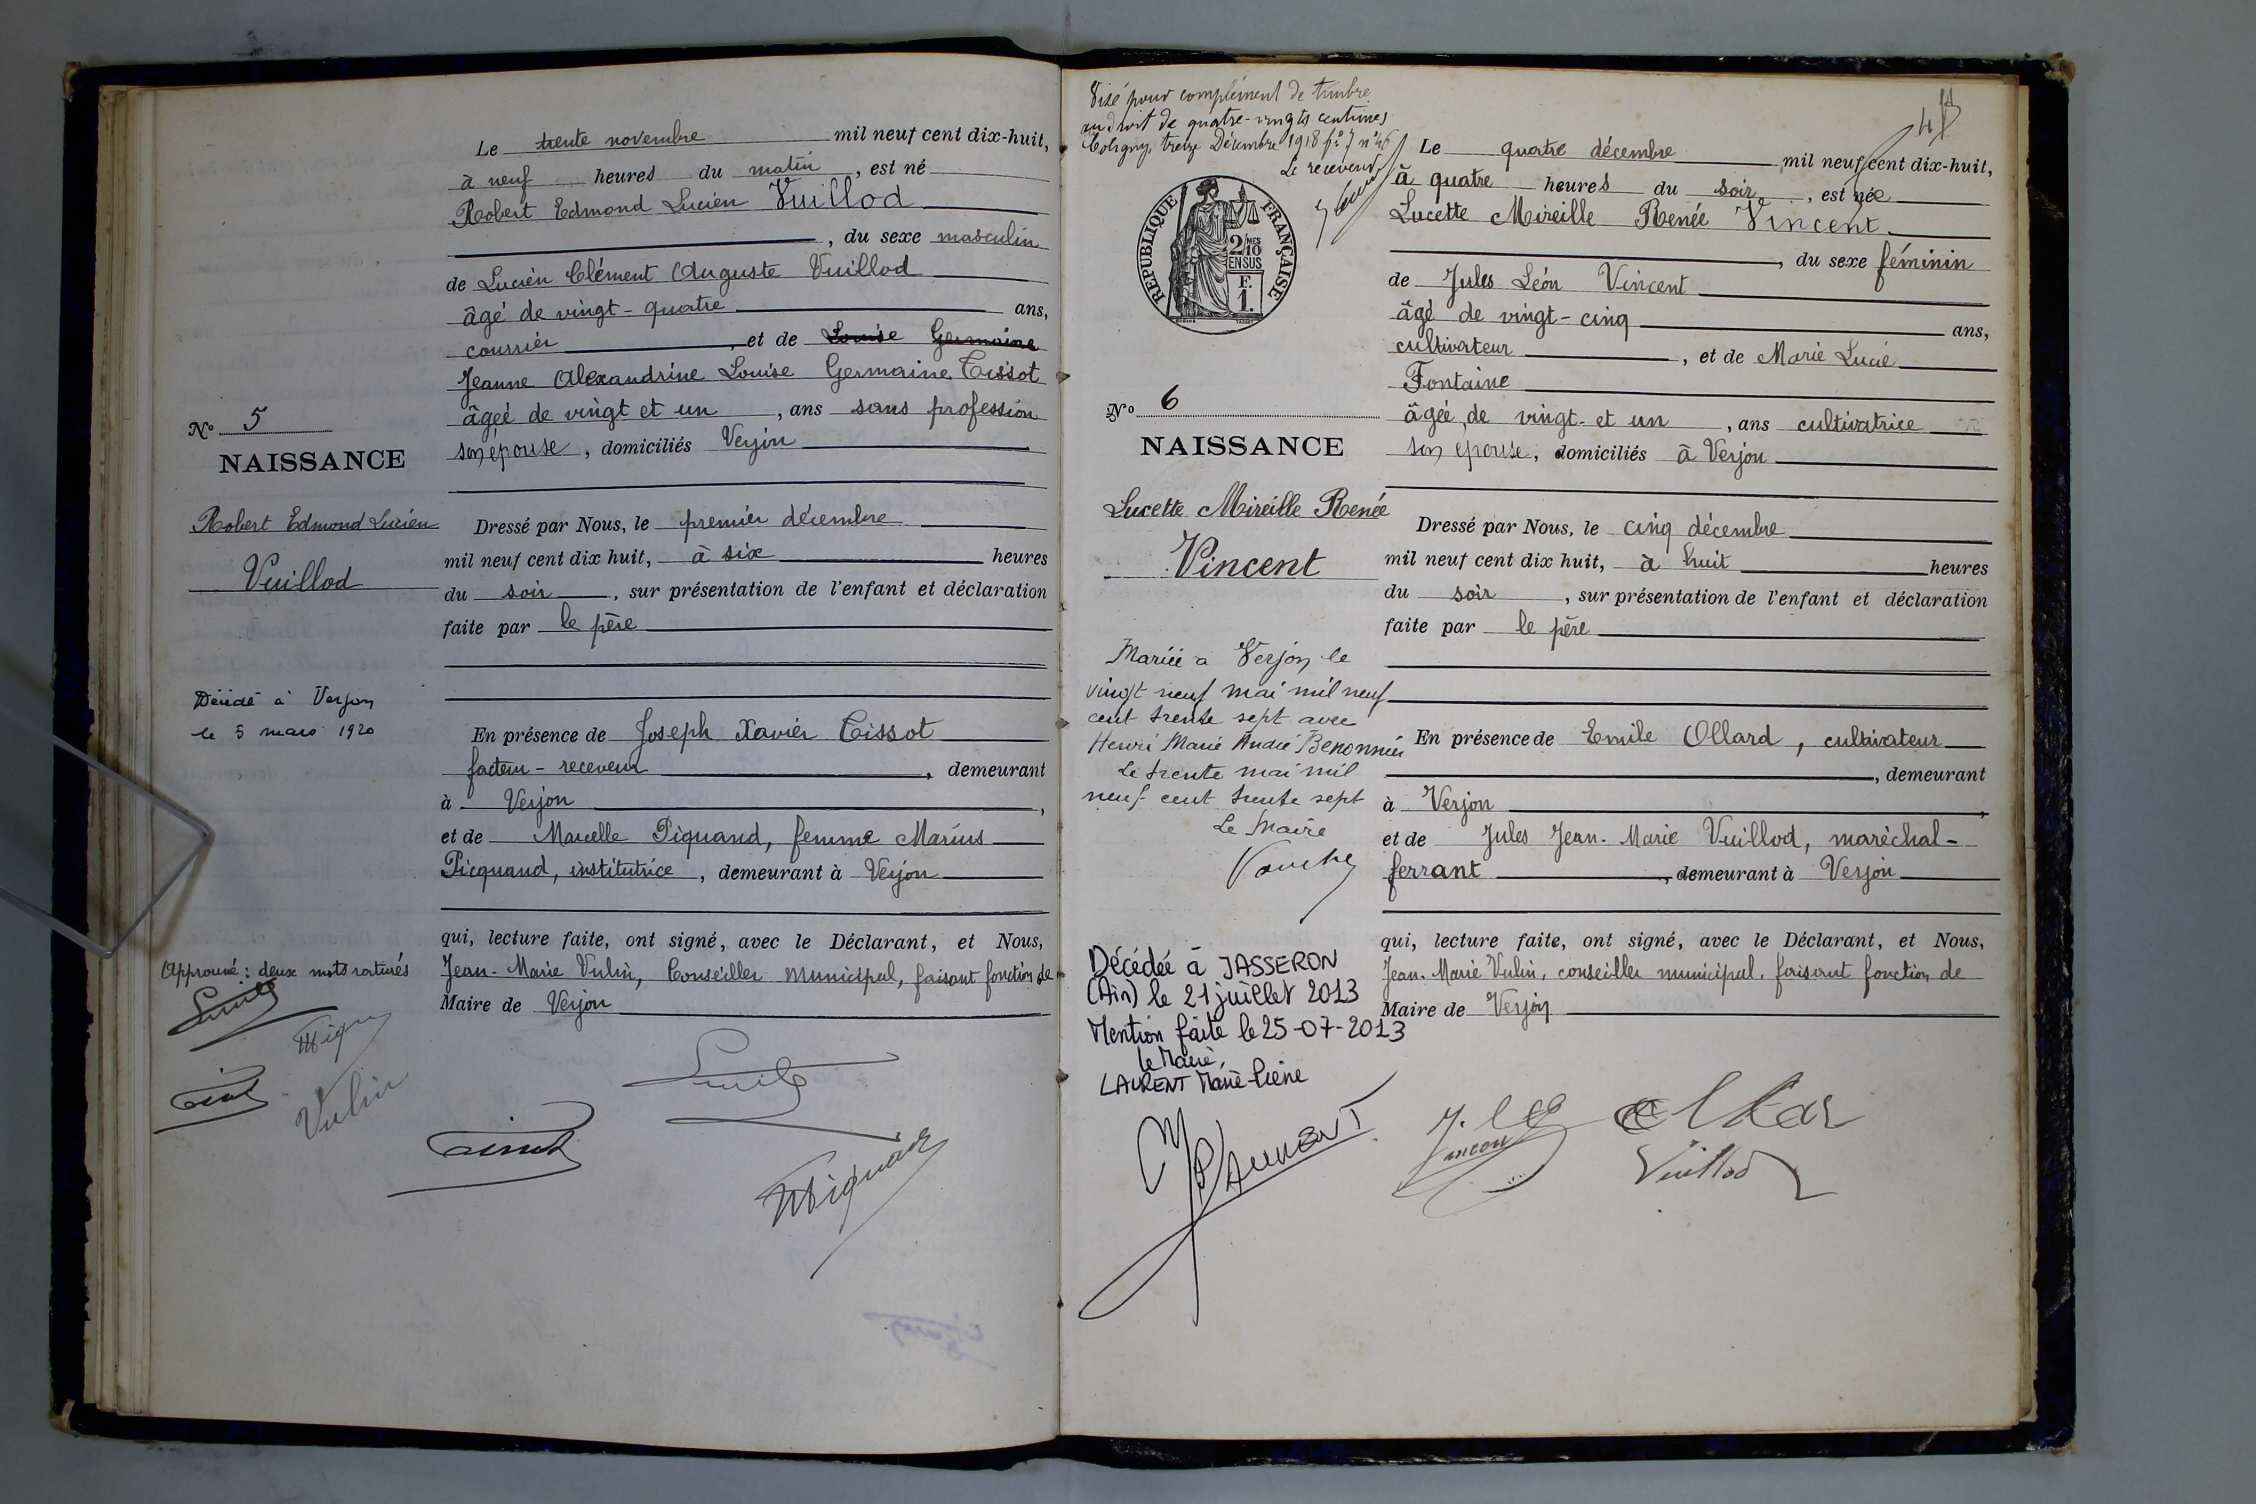 Le trente novembre mil neuf cent dix-huit,
à neuf heures du matin, est né
Robert Edmond Lucien Vuillod
, du sexe masculin
de Lucien Clément Auguste Vuillod
âgé de vingt-quatre ans,
courrier, et de Louise Germaine
Jeanne Alexandrine Louise Germaine Tissot
âgéé de vingt et un, ans sans profession
son épouse, domiciliés Verjon
Nº 5
NAISSANCE
Robert Edmond Lucien
Vuillod
Dressé par Nous, le premier décembre
mil neuf cent dix huit, à six heures
du soir, sur présentation de l'enfant et déclaration
faite par le père
Décédé à Verjon
le 5 mars 1920
En présence de Joseph Xavier Tissot
facteur-receveur, demeurant
à Verjon,
et de Marcelle Piquand, femme Marius
Picquand, institutrice, demeurant à Verjon
qui, lecture faite, ont signé, avec le Déclarant, et Nous,
Jean-Marie Vulin, Conseiller municipal, faisant fonction de
Maire de Verjon
Approuvé: deux mots raturés
Vulin
Visé pour complément de timbre
au droit de quatre-vingts centimes
Coligny, treize Décembre 1918 fº 7 nº 46
Le receveur
RÉPUBLIQUE FRANÇAISE
2/10 MES
EN SUS
F.
1.
Le quatre décembre mil neuf cent dix-huit,
à quatre heures du soir, est née
Lucette Mireille Renée Vincent
, du sexe féminin
de Jules Léon Vincent
âgé de vingt-cinq ans,
cultivateur, et de Marie Lucie
Fontaine
âgée de vingt-et un, ans cultivatrice
son epouse, domiciliés à Verjon
Nº 6
NAISSANCE
Lucette Mireille Renée
Vincent
Dressé par Nous, le cinq décembre
mil neuf cent dix huit, à huit heures
du soir, sur présentation de l'enfant et déclaration
faite par le père
Mariée à Verjon le
vingt neuf mai mil neuf
cent trente sept avec
Henri Marie André
Le trente mai mil
neuf cent trente sept
Le Maire
En présence de Emile Ollard, cultivateur
, demeurant
à Verjon,
et de Jules Jean-Marie Vuillod, maréchal-
ferrant, demeurant à Verjon
qui, lecture faite, ont signé, avec le Déclarant, et Nous,
Jean-Marie Vulin, conseiller municipal, faisant fonction de
Maire de Verjon
Décédée à JASSERON
(Ain) le 21 juillet 2013
Mention faite le 25-07-2013
Le Maire,
LAURENT Marie-Pierre
Vuillod